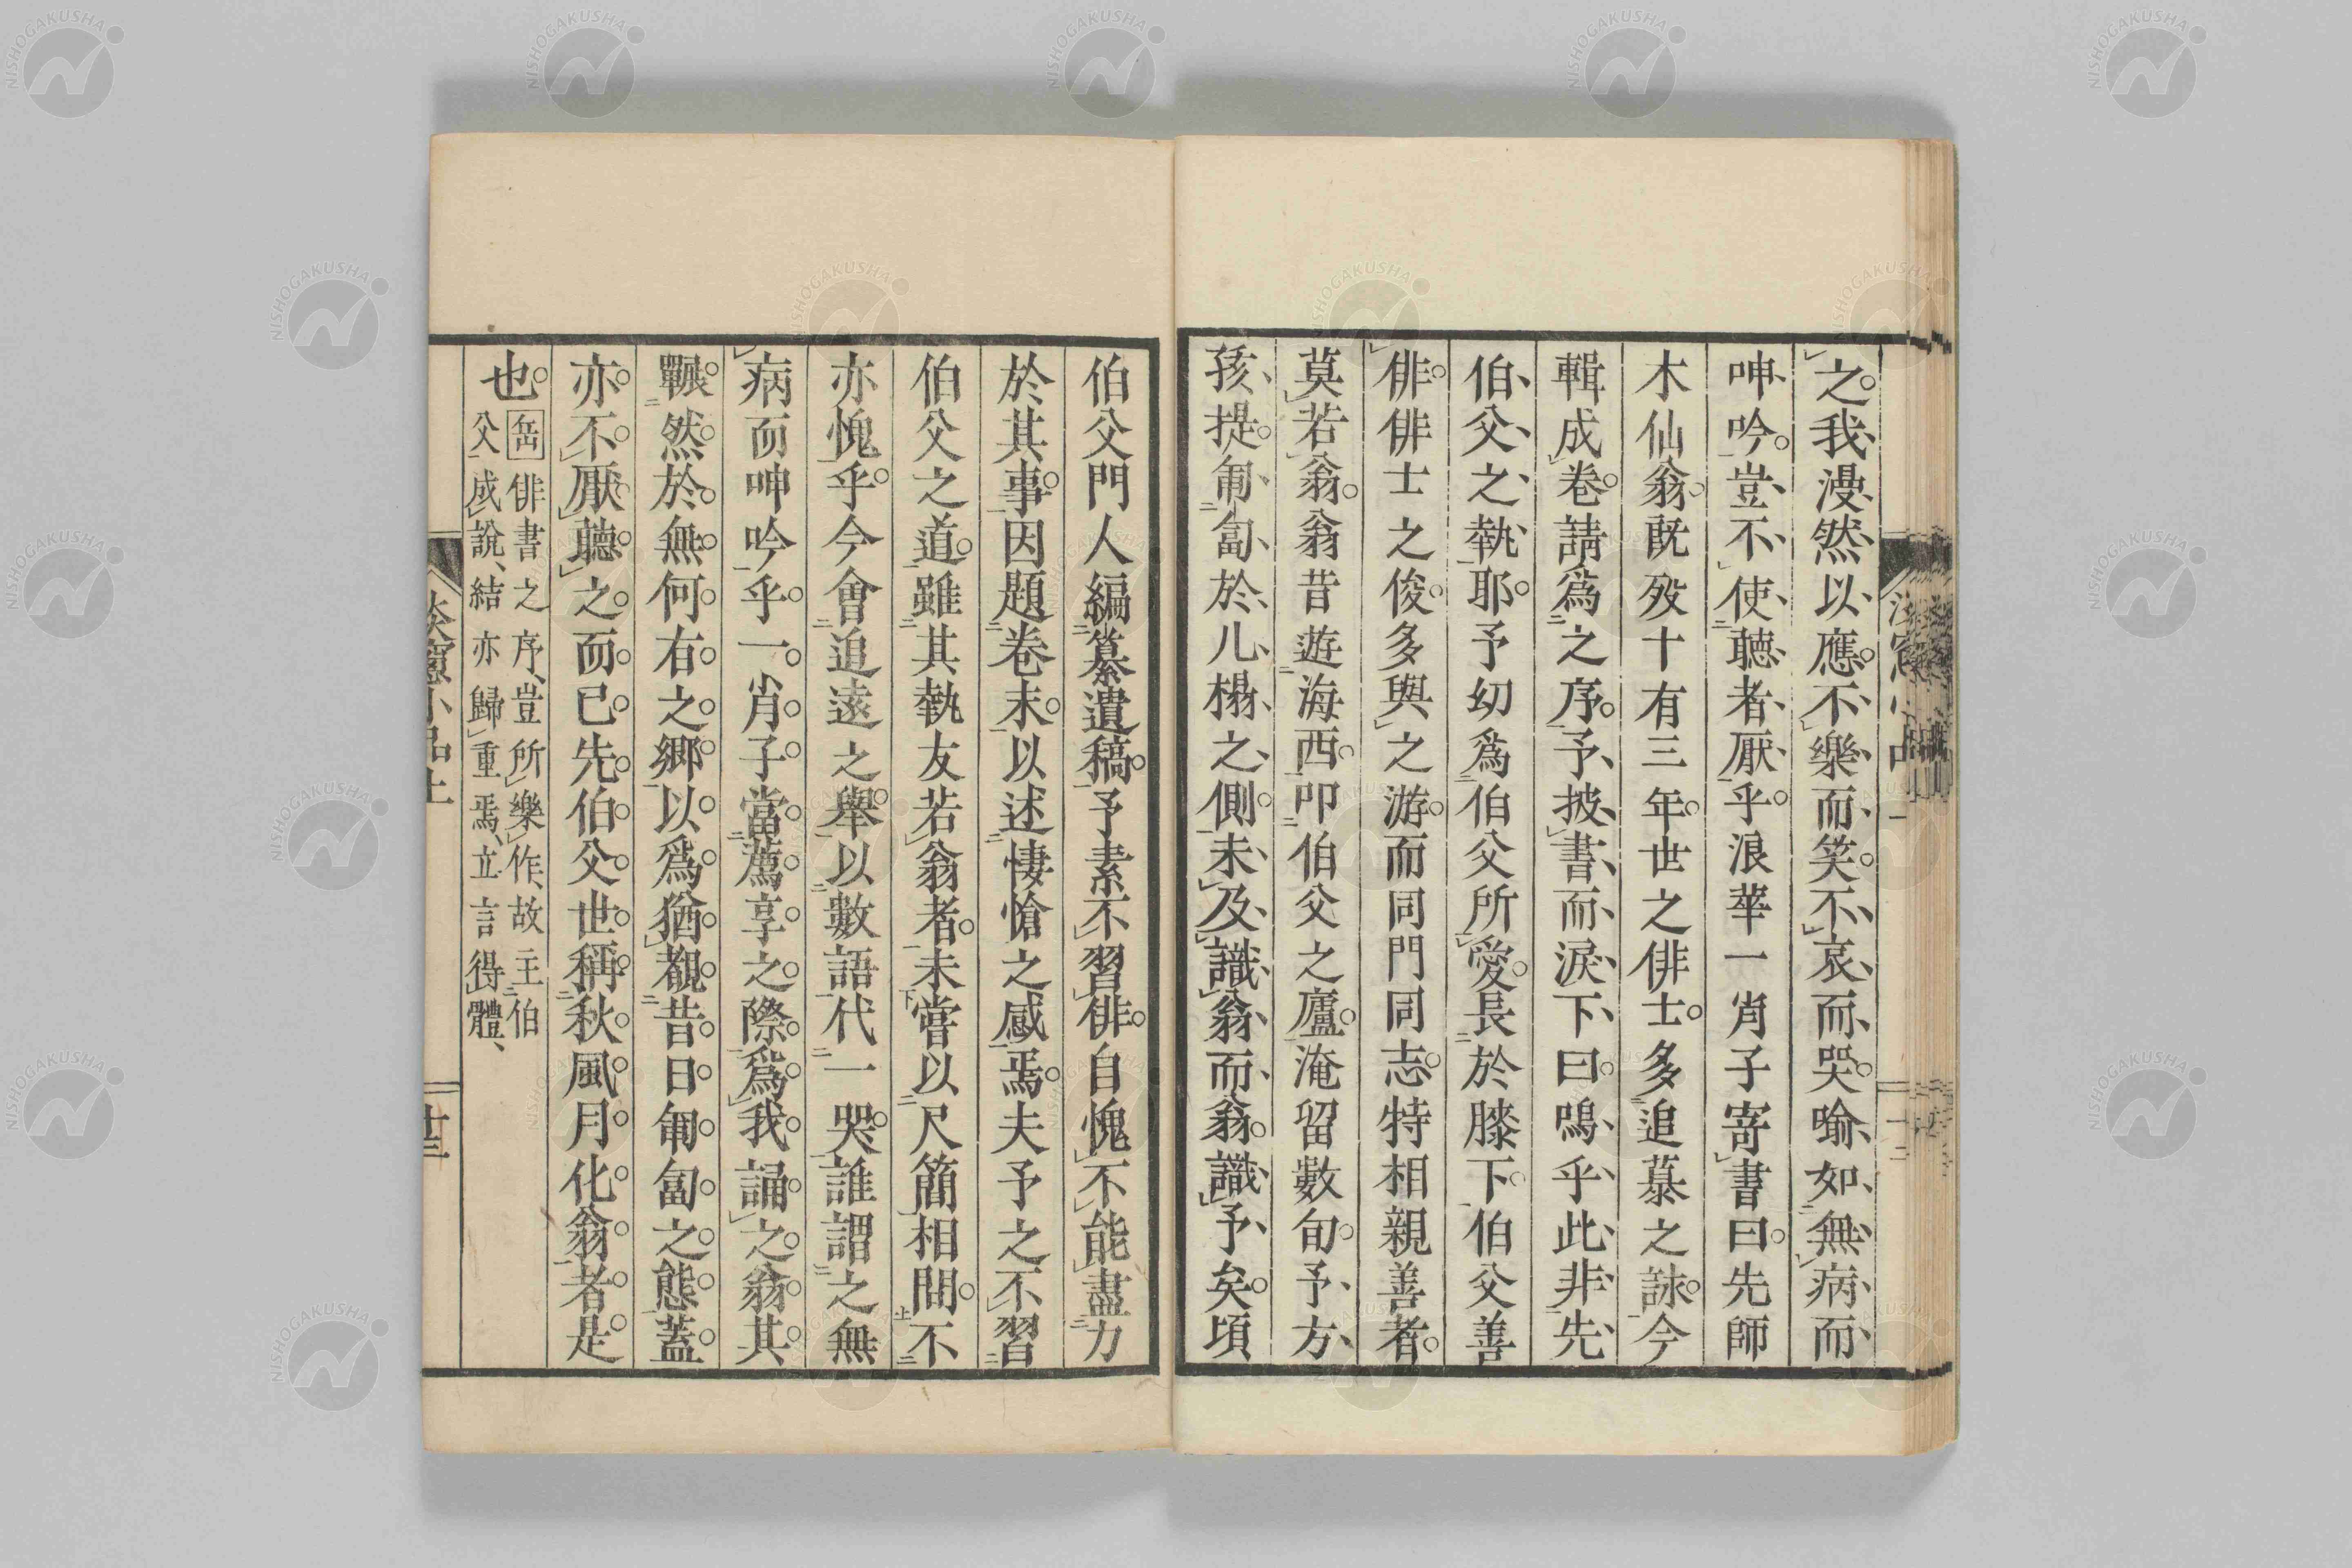 之。我漫然以應。不樂而笑。不哀而哭。喩如無病而
呻吟。豈不使聽者厭乎。浪華一肖子寄書曰。先師
木仙翁。既歿十有三年。世之俳士。多追慕之詠。今
輯成卷。請爲之序。予披書而淚下曰。嗚乎此非先
伯父之執耶。予幼爲伯父所愛。長於膝下。伯父善
俳。俳士之俊。多與之游。而同門同志。特相親善者。
莫若翁。翁昔遊海西。叩伯父之廬。淹留數旬。予方
孩提。匍匐於几榻之側。未及識翁而翁。識予矣。頃
伯父門人編纂遺稿。予素不習俳。自愧不能盡力
於其事。因題卷末。以述悽愴之感焉。夫予之不習
伯父之道。雖其執友若翁者。未嘗以尺簡相問。不
亦愧乎。今會追遠之舉。以數語代一哭。誰謂之無
病而呻吟乎。一肖子。當薦享之際。爲我誦之。翁其
囅然於無何有之鄉。以爲猶覩昔日匍匐之態。蓋
亦不厭聽之而已。先伯父世稱秋風月化翁者是
也。
岳 俳書之序、豈所樂作、故主伯
父成說、結亦歸重焉、立言得體、
談窻小品上
廿三